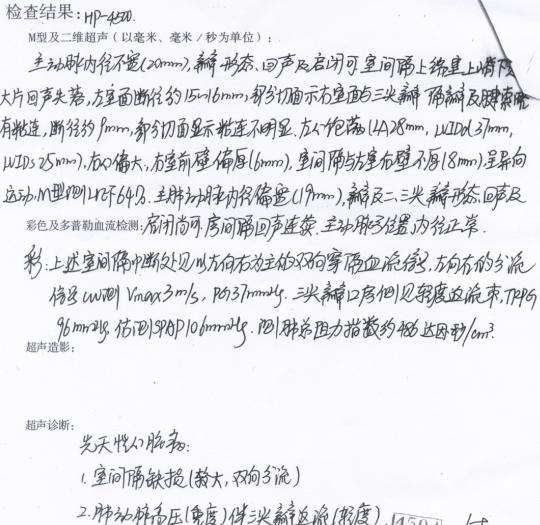 检查结果: HP-4500.
M型及二维超声（以毫米、毫米/秒为单位）:
主动脉内径不宽(20mm), 瓣形态、回声及启闭可. 室间隔上缘嵴上嵴下
大片回声失落, 左室面断径约15~16mm, 部分切面示右室面与三尖瓣隔瓣及腱索
有粘连, 断径约9mm, 部分切面显示粘连不明显. 左心饱满(LA28mm, LVIDd37mm,
LVIDs25mm), 右心偏大, 右室前壁偏厚(6mm), 室间隔与左室后壁不厚(8mm)呈异向
运动, M型测LVEF64%. 主肺动脉内径偏宽(19mm), 瓣及二、三尖瓣形态回声及
彩色及多普勒血流检测: 启闭尚可. 房间隔回声连续. 主动脉弓位置、内径正常.
彩: 上述室间隔中断处见以左向右为主的双向穿隔血流信号, 左向右的分流
信号CW测Vmax3m/s, PG37mmHg. 三尖瓣口房侧见轻度返流束, TRPG
96mmHg, 估测SPAP106mmHg. 测肺总阻力指数约486达因秒/cm³.
超声造影:
超声诊断:
先天性心脏病:
1. 室间隔缺损(较大, 双向分流)
2. 肺动脉高压(重度)伴三尖瓣返流(轻度)